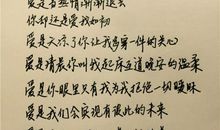 爱是当热情渐渐退去
你却还是爱我如初
爱是天凉了你让我多穿一件的关心
爱是清晨你叫我起床与道晚安的温柔
爱是你眼里只有我为我拒绝一切暧昧
爱是我们会实现有彼此的未来